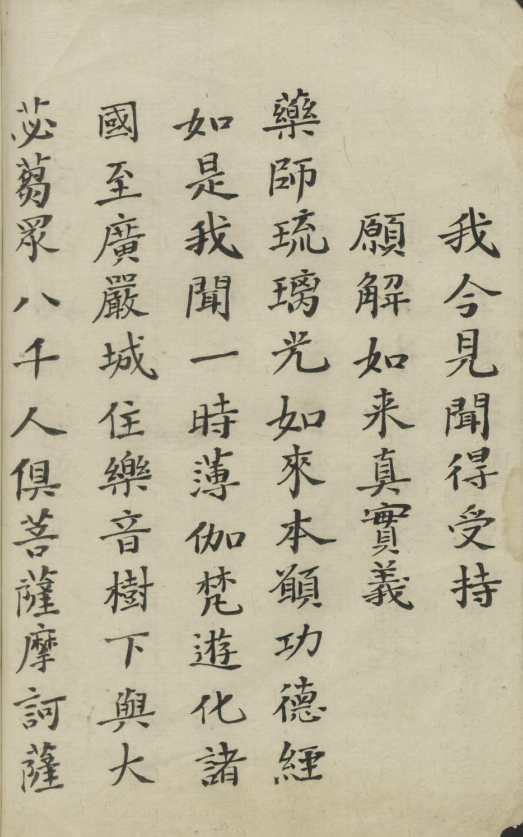 我今見聞得受持
願解如来真實義
藥師琉璃光如來本願功德經
如是我聞一時薄伽梵遊化諸
國至廣嚴城住樂音樹下與大
苾蒭眾八千人俱菩薩摩訶薩